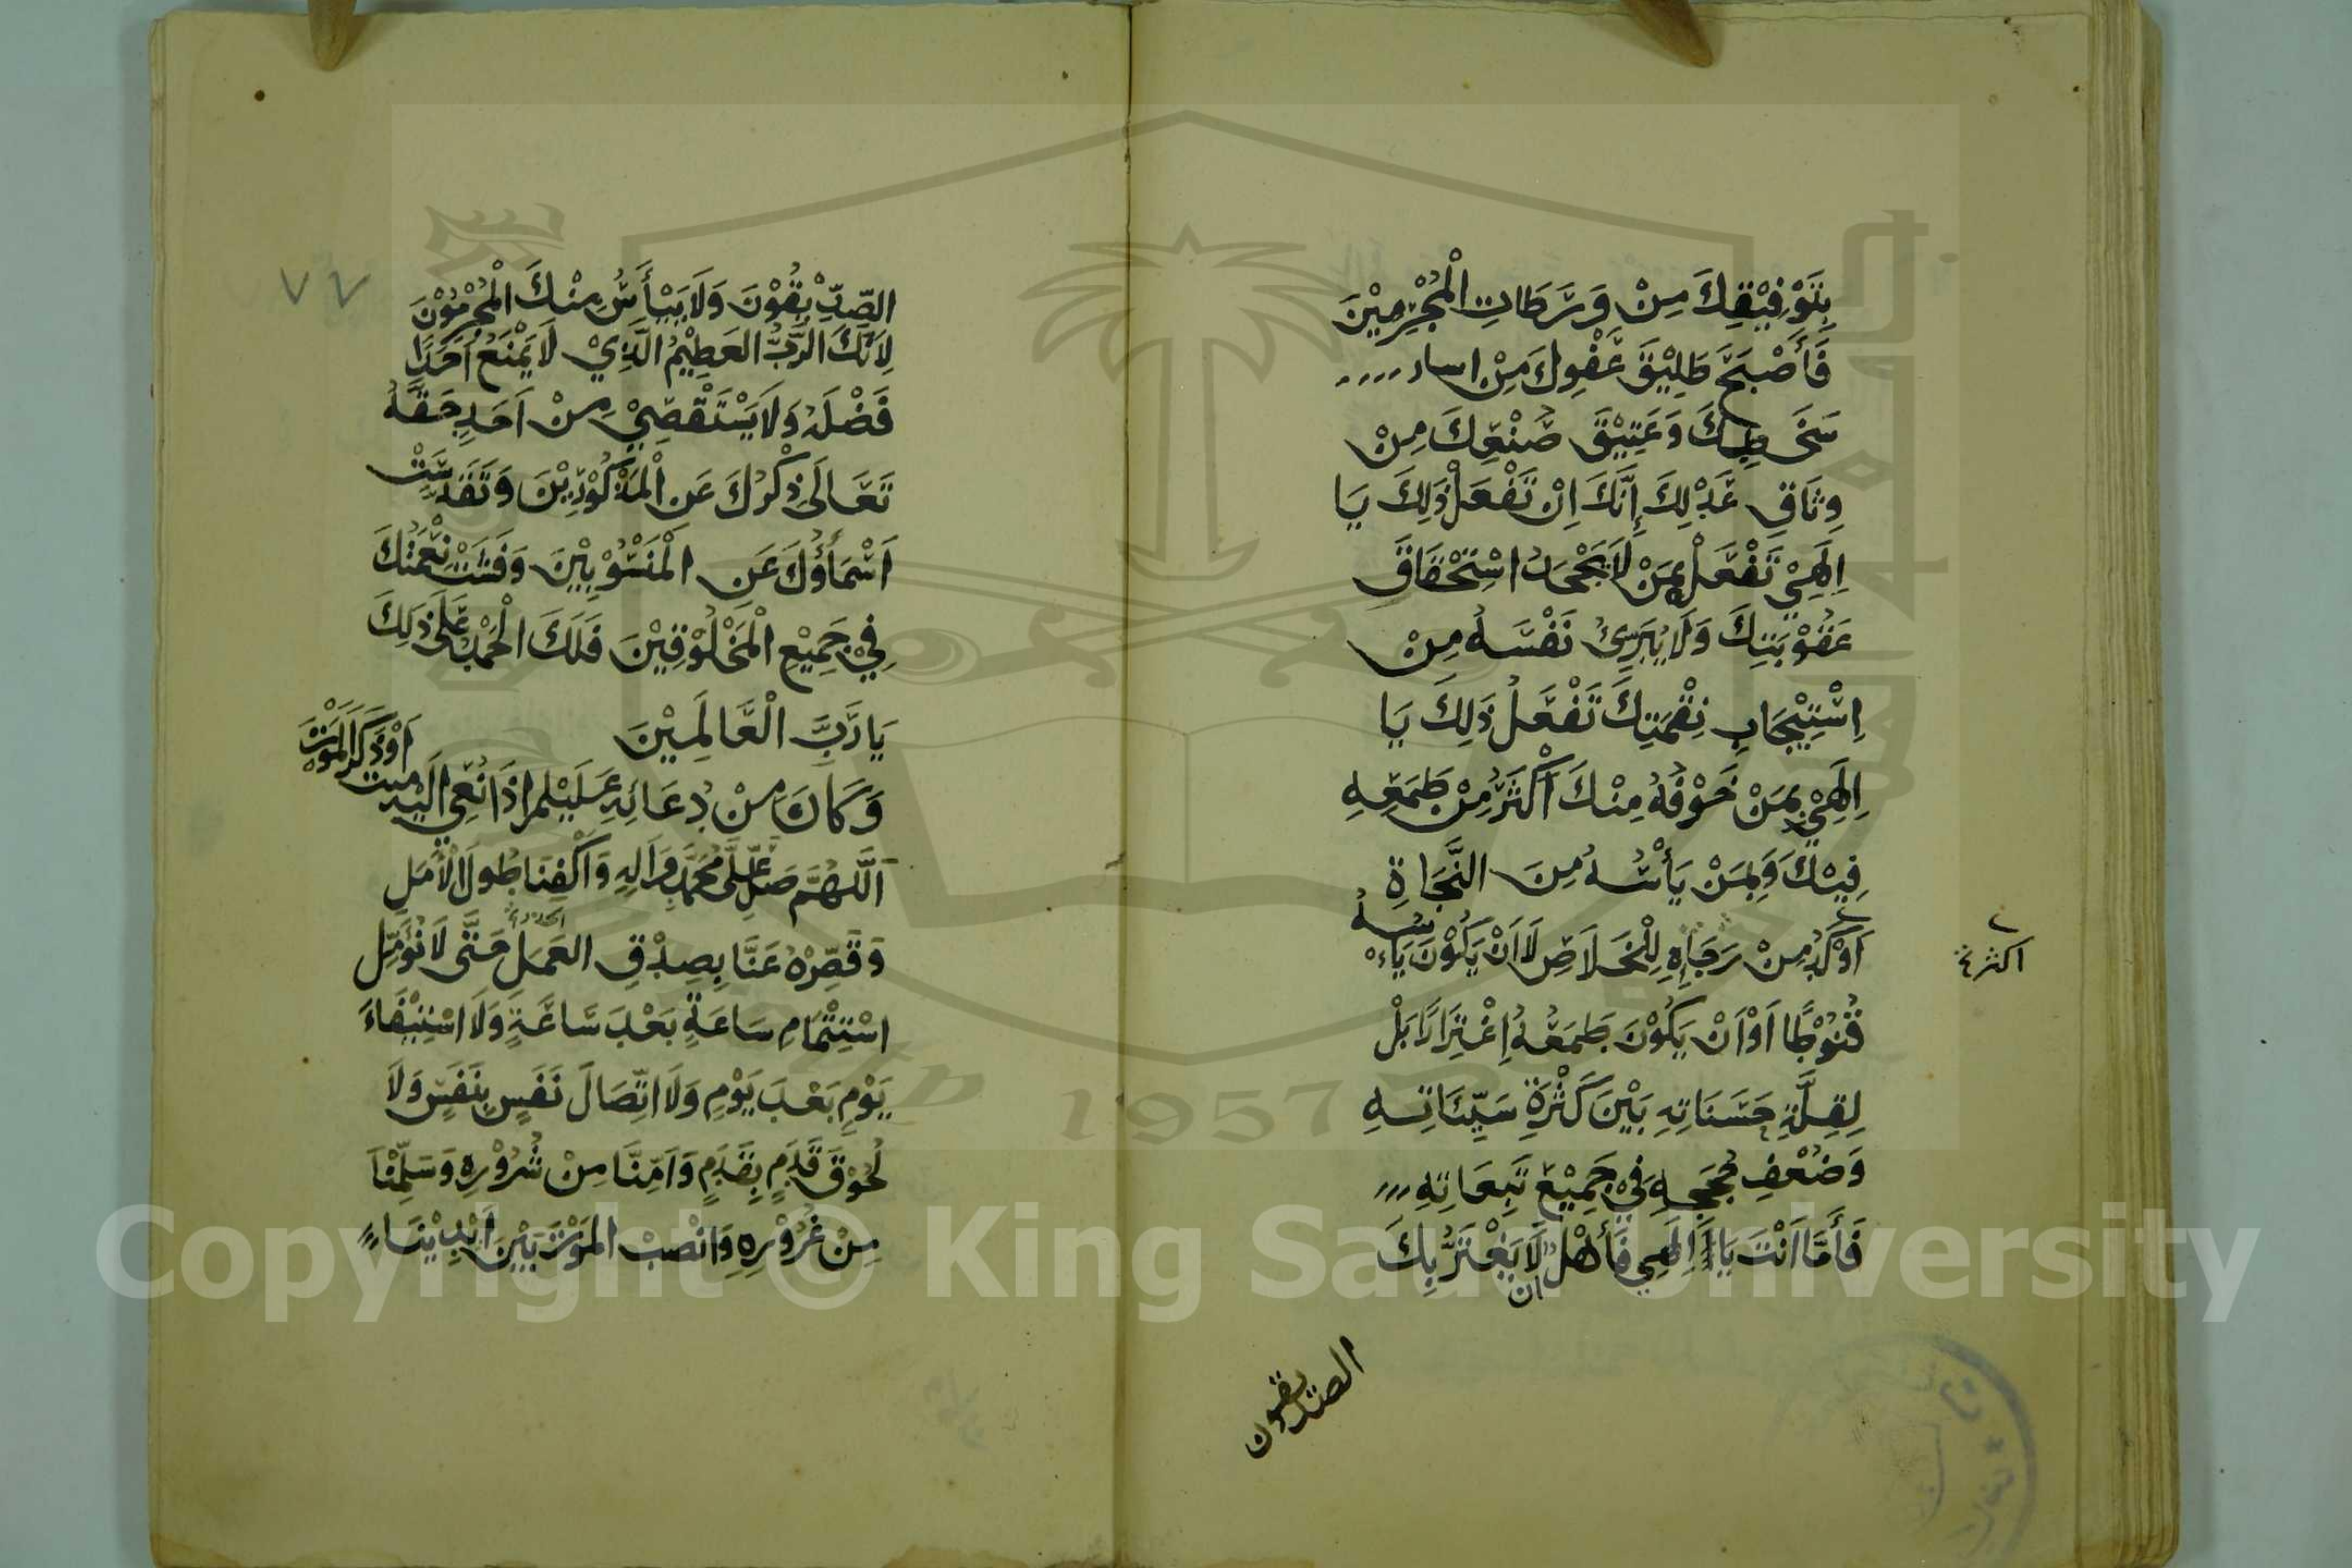 بِتَوْفِيْقِكَ مِنْ وَرَطَاتِ الْمُجْرِمِيْنَ
فَأَصْبَحَ طَلِيْقَ عَفْوِكَ مِنْ اسار
سَخَطِكَ وَعَتِيْقَ صُنْعِكَ مِنْ
وِثَاقِ عَدْلِكَ إِنَّكَ اِنْ تَفْعَلْ ذَلِكَ يَا
اِلَهِيْ تَفْعَلْ بِمَنْ لَا يَجْحَدُ اسْتِحْقَاقَ
عَقُوْبَتِكَ وَلَا يُبَرِّئُ نَفْسَهُ مِنْ
اِسْتِيْجَابِ نِقْمَتِكَ تَفْعَلُ ذَلِكَ يَا
اِلَهِيْ بِمَنْ خَوْفُهُ مِنْكَ اَكْثَرُ مِنْ طَمَعِهِ
فِيْكَ وَبِمَنْ يَأْسُهُ مِنَ النَّجَاةِ
اَوْكَدُ مِنْ رَجَاءِهِ لِلْخَلَاصِ لَا اَنْ يَكُوْنَ يَأْسُهُ
اكثر
قُنُوْطًا اَوْ اَنْ يَكُوْنَ طَمَعُهُ اِغْتِرَارًا بَلْ
لِقِلَّةِ حَسَنَاتِهِ بَيْنَ كَثْرَةِ سَيِّئَاتِهِ
وَضُعْفِ حُجَجِهِ فِيْ جَمِيْعِ تَبِعَاتِهِ
فَأَمَّا اَنْتَ يَا اِلَهِي فَأَهْلٌ ان لَا يَغْتَرَّ بِكَ
الصديقون
٧٦
الصِّدِّيْقُوْنَ وَلَا يَيْأَسُ مِنْكَ الْمُجْرِمُوْنَ
لِاَنَّكَ الرَّبُّ العَظِيْمُ الَّذِيْ لَا يَمْنَعُ اَحَدًا
فَضْلَهُ وَلَا يَسْتَقْصِيْ مِنْ اَحَدٍ حَقَّهُ
تَعَالَى ذِكْرُكَ عَنِ الْمَذْكُوْرِيْنَ وَتَقَدَّسَتْ
اَسْمَاؤُكَ عَنِ الْمَنْسُوْبِيْنَ وَفَشَتْ نِعْمَتُكَ
فِيْ جَمِيْعِ الْمَخْلُوْقِيْنَ فَلَكَ الْحَمْدُ عَلَى ذَلِكَ
يَا رَبَّ الْعَالَمِيْنَ
وَكَانَ مِنْ دُعَائِهِ عَلَيْهِ السلم اِذَا نُعِيَ اِلَيْهِ ميت اَوْ ذَكَرَ الْمَوْتَ
اَللَّهُمَّ صَلِّ عَلَى مُحَمَّدٍ وَاَلِهِ وَاَكْفِنَا طُولَ الْاَمَلِ
وَقَصِّرْهُ عَنَّا بِصِدْقِ العَمَلِ حَتَّى لَا نُؤَمِّلَ
اسْتِتْمَامِ سَاعَةٍ بَعْدَ سَاعَةٍ وَلَا اسْتِيْفَاءَ
يَوْمٍ بَعْدَ يَوْمٍ وَلَا اتِّصَالَ نَفَسٍ بِنَفَسٍ وَلَا
لُحُوْقَ قَدَمٍ بِقَدَمٍ وَاَمِنَّا مِنْ شُرُوْرِهِ وَسَلِّمْنَا
مِنْ غُرُوْرِهِ وَانْصِبْ المَوْتَ بَيْنَ اَيْدِيْنَا
Copyright © King Saud University
1957